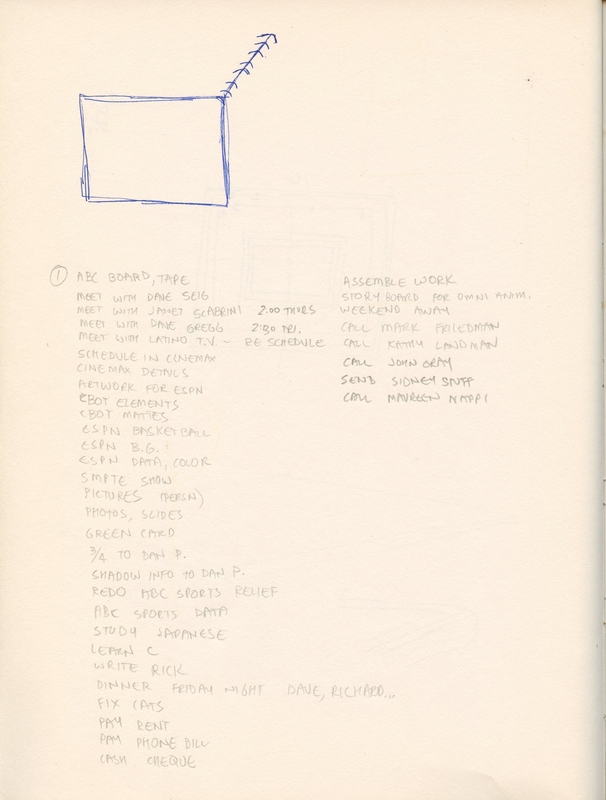 ① ABC BOARD, TAPE
MEET WITH DAVE SEIG
MEET WITH JANET SCABRINI 2:00 THURS
MEET WITH DAVE GREGG 2:30 FRI.
MEET WITH LATINO T.V. – RE SCHEDULE
SCHEDULE IN CINEMAX
CINEMAX DETAILS
ARTWORK FOR ESPN
CBOT ELEMENTS
CBOT MATTES
ESPN BASKETBALL
ESPN B.G.
ESPN DATA, COLOR
SMPTE SHOW
PICTURES
PHOTOS, SLIDES
GREEN CARD
3/4 TO DAN P.
SHADOW INFO TO DAN P.
REDO ABC SPORTS RELIEF
ABC SPORTS DATA
STUDY JAPANESE
LEARN C
WRITE RICK
DINNER FRIDAY NIGHT DAVE, RICHARD...
FIX CATS
PAY RENT
PAY PHONE BILL
CASH CHEQUE
ASSEMBLE WORK
STORY BOARD FOR OMNI ANIM.
WEEKEND AWAY
CALL MARK FRIEDMAN
CALL KATHY LANDMAN
CALL JOHN GRAY
SEND SIDNEY STUFF
CALL MAUREEN NAPPI